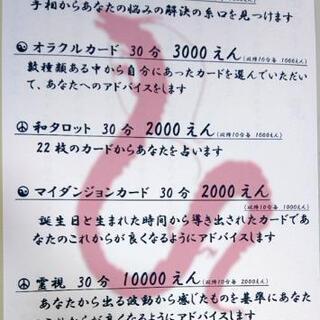 手相からあなたの悩みの解決の糸口を見つけます
オラクルカード 30分 3000えん (以降10分毎 1000えん)
数種類ある中から自分にあったカードを選んでいただい
て、あなたへのアドバイスをします
和タロット 30分 2000えん (以降10分毎 1000えん)
22枚のカードからあなたを占います
マイダンジョンカード 30分 2000えん (以降10分毎 1000えん)
誕生日と生まれた時間から導き出されたカードであ
なたのこれからが良くなるようにアドバイスします
霊視 30分 10000えん (以降10分毎 2000えん)
あなたから出る波動から感じたものを基準にあなた
が良くなるようにアドバイスします